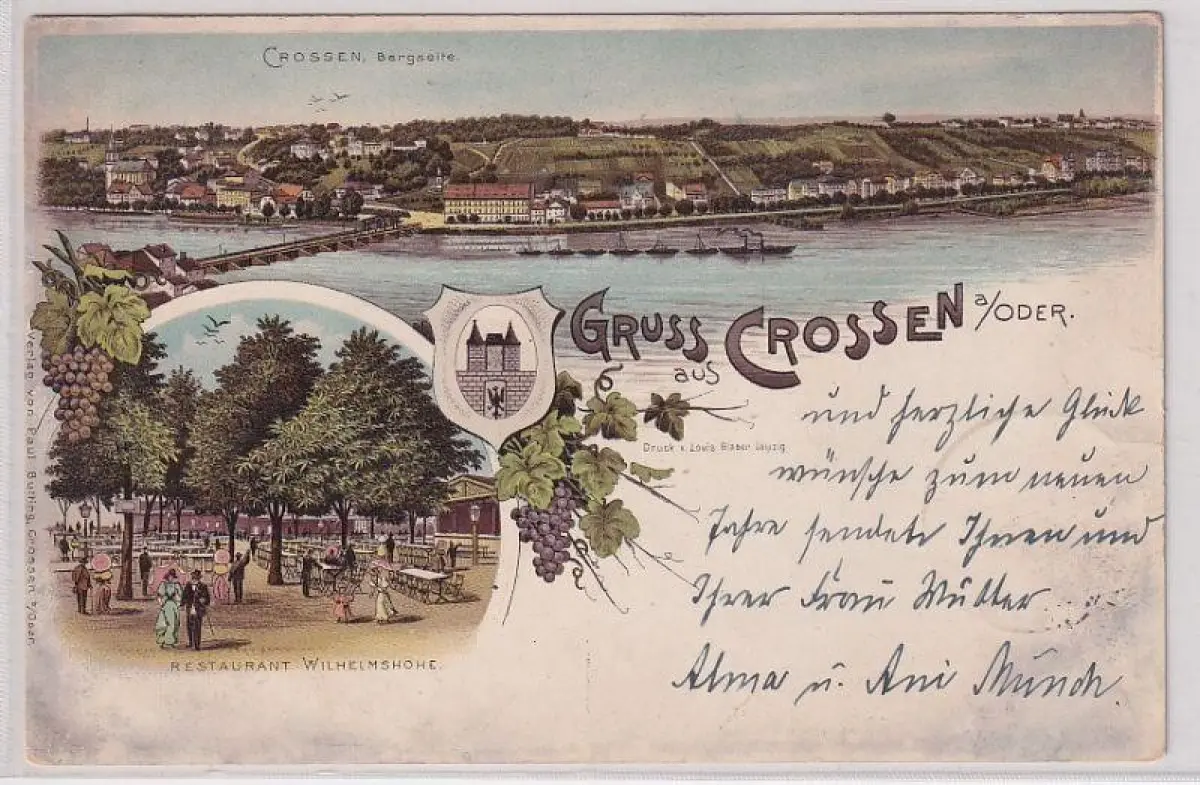 CROSSEN, Bergseite.
GRUSS aus CROSSEN a/ODER.
Druck v. Louis Glaser Leipzig
und herzliche Glück
wünsche zum neuen
Jahre sendete Ihnen und
Ihrer Frau Mutter
Alma u. Ani Münch.
RESTAURANT WILHELMSHÖHE.
Verlag von Paul Butting, Crossen a/Oder.